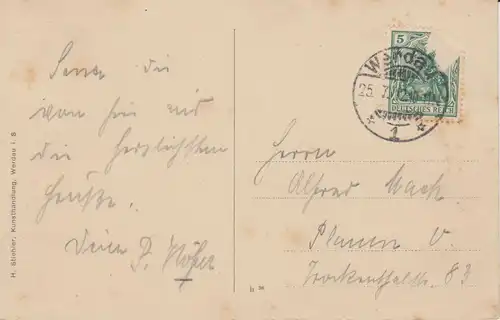 Sende dir
von hier aus
die herzlichsten
Grüße.
Dein P.
H. Strohler, Kunsthandlung, Werdau i. S
5
Werdau
25. 7.
DEUTSCHES REICH
1
Herrn
Alfred Mach.
Plauen V.
Trockenthalstr. 83